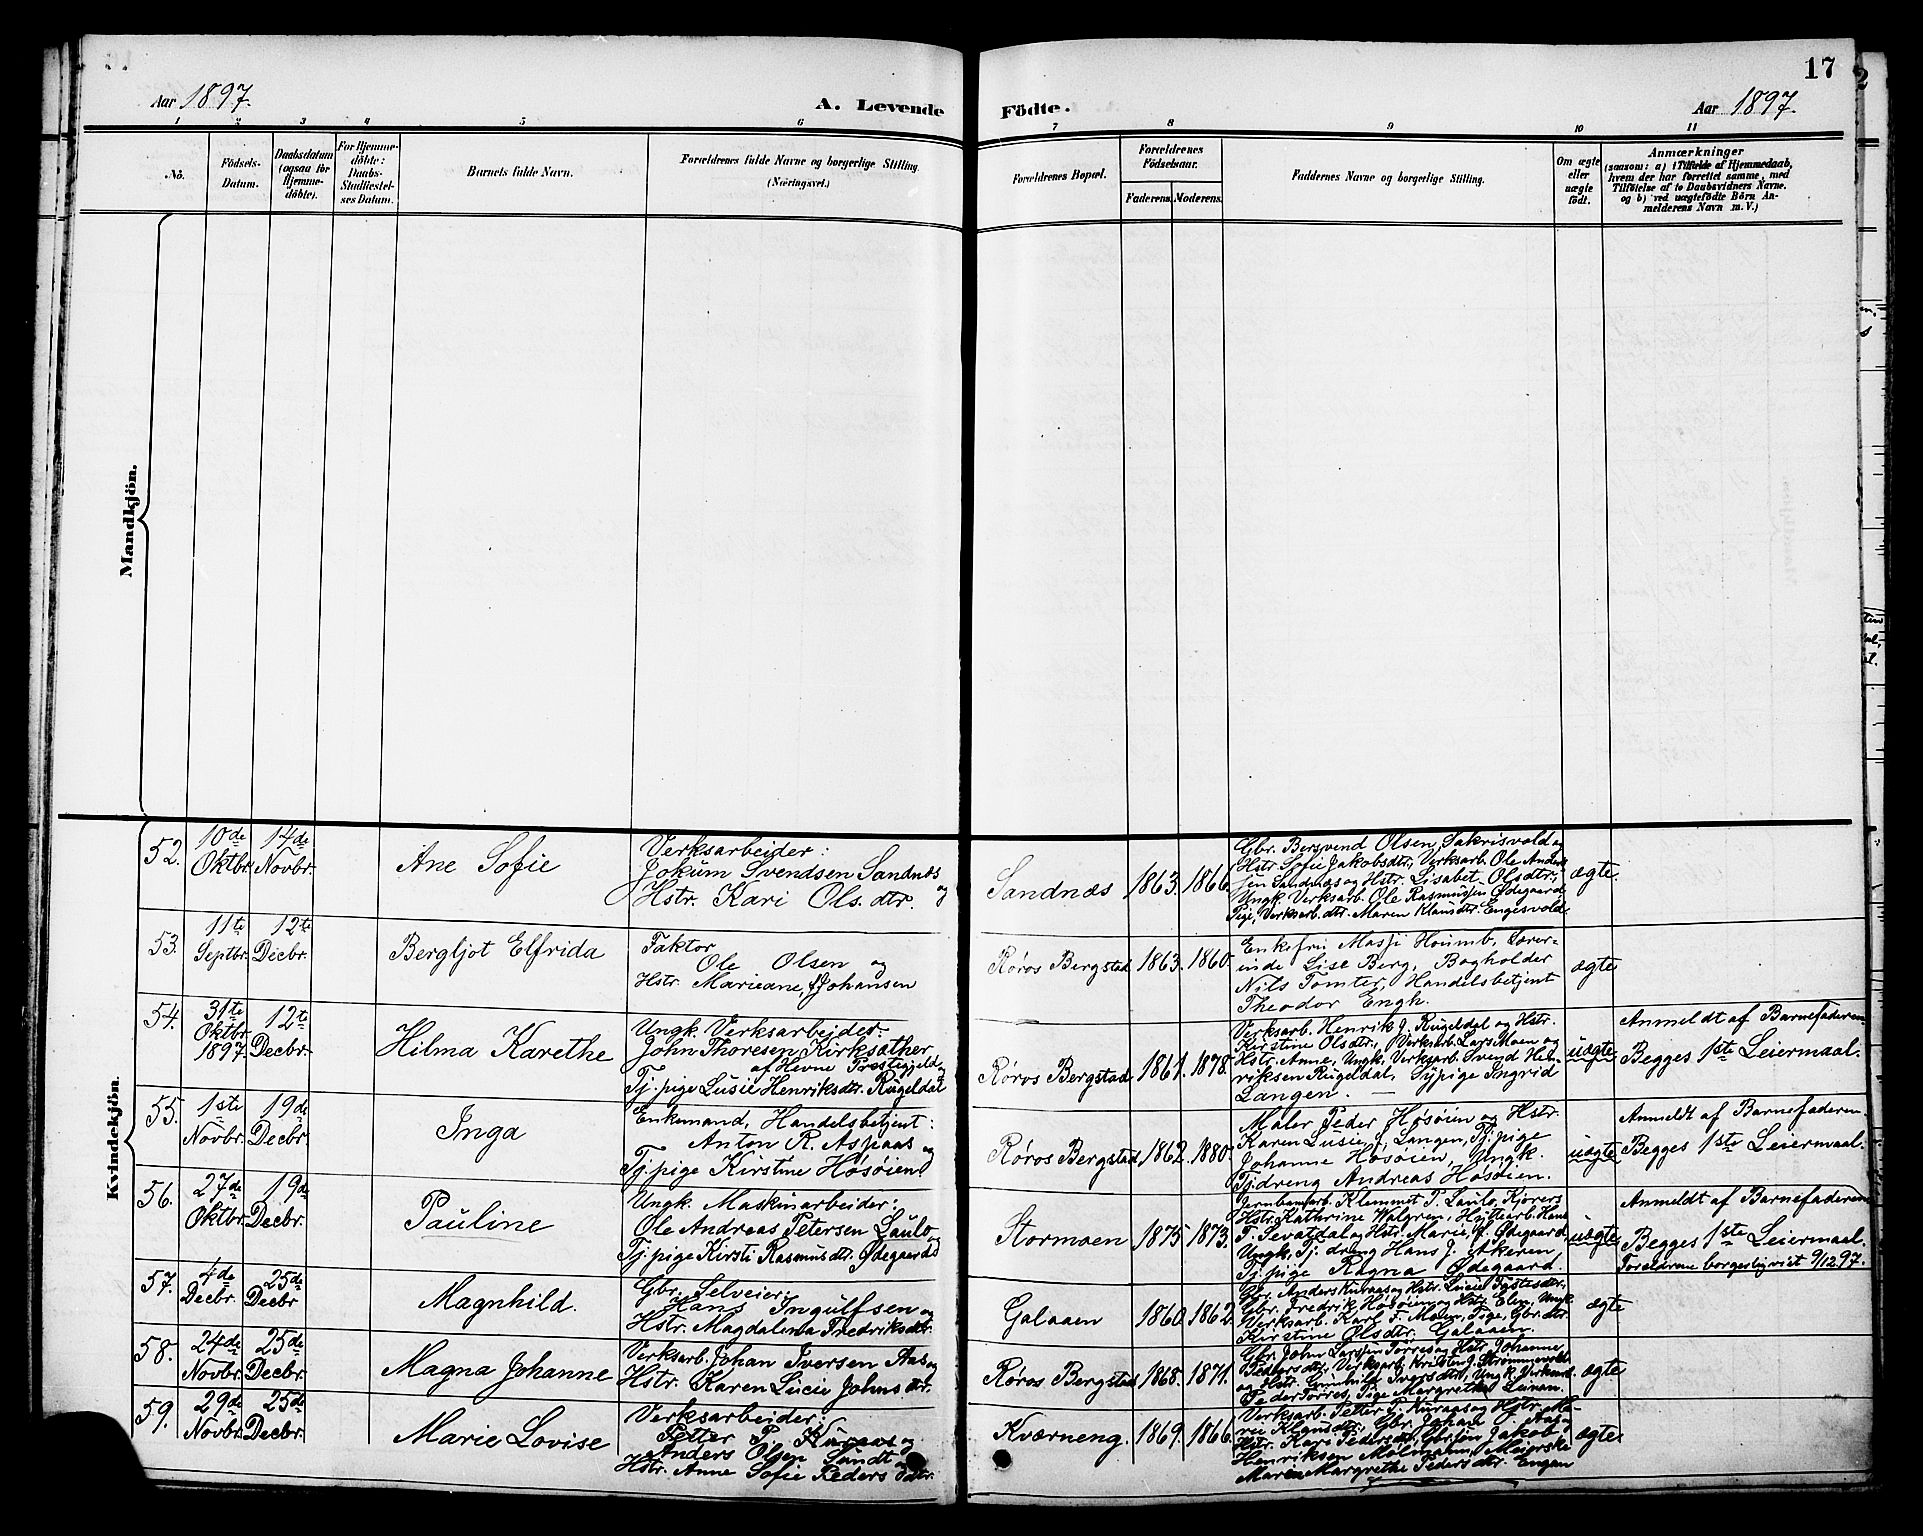 Aar 1897.
A. Levende
Födte.
Aar 1897.
17
1
2
3
4
5
6
7
8
9
10
11
No.
Födsels-
Datum.
Daabsdatum
(ogsaa for
Hjemme-
döbte).
For Hjemme-
döbte:
Daabs-
Stadfæstel-
ses Datum.
Barnets fulde Navn.
Forældrenes fulde Navne og borgerlige Stilling.
(Næringsvei.)
Forældrenes Bopæl.
Forældrenes
Födselsaar.
Faderens.
Moderens.
Faddernes Navne og borgerlige Stilling.
Om ægte
eller
uægte
födt.
Anmærkninger
(saasom: a) i Tilfælde af Hjemmedaab,
hvem der har forrettet samme, med
Tilföielse af to Daabsvidners Navne.
og b) ved uægtefödte Börn An-
melderens Navn m. V.)
Mandkjön.
Kvindekjön.
52.
10de
Oktbr.
14de
Novbr.
Ane Sofie
Verksarbeider:
Jokum Svendsen Sandnæs
og
Hstr. Kari Ols.dtr.
Sandnæs
1863.
1866.
Gbr. Bersvend Olsen, Sakrisvold og
Hstr. Sofie Jakobsdtr., Verksarb. Ole Ander-
sen Sandnæs og Hstr. Lisabet Olsdtr.,
Ungk. Verksarb. Ole Rasmussen Ødegaard
Pige, Verksarb.dtr. Maren Klausdtr. Engesvold.
ægte.
53.
11te
Septbr.
12te
Decbr.
Bergljot Elfrida
Faktor
Ole Olsen og
Hstr. Marieane, f. Johansen
Røros Bergstad
1863.
1860.
Enkefru Masji Houmb, Lærer-
inde Lise Berg, Bogholder
Nils Tomter, Handelsbetjent
Theodor Engh.
ægte
54.
31te
Oktbr.
1897.
12te
Decbr.
Hilma Karethe
Ungk. Verksarbeider:
John Thoresen Kirksæther
af Hevne Prestegjeld og
Tj.pige Lusie Henriksdtr. Rugeldal
Røros Bergstad
1861.
1878.
Verksarb. Henrik J. Rugeldal og Hstr.
Kirstine Olsdtr., Verksarb. Lars Moen og
Hstr. Anne, Ungk. Verksarb. Svend Hen-
riksen Rugeldal, Sypige Ingrid
Langen. —
uægte
Anmeldt af Barnefaderen.
Begges 1ste Leiermaal.
55.
1ste
Novbr.
19de
Decbr.
Inga
Enkemand, Handelsbetjent:
Anton R. Aspaas og
Tj.pige Kirstine Hosøien
Røros Bergstad
1862.
1880.
Maler Peder Hosøien og Hstr.
Karen Lusie, f. Langen, Tj.pige
Johanne Hosøien, Ungk.
Tj.dreng Andreas Hosøien.
uægte
Anmeldt af Barnefaderen.
Begges 1ste Leiermaal.
56.
27de
Oktbr.
19de
Decbr.
Pauline
Ungk. Maskinarbeider:
Ole Andreas Petersen Laulo og
Tj.pige Kirsti Rasmusdtr. Ødegaard
Stormoen
1875
1873.
Jernbanearb. Klemmet P. Laulo, Kjørers
Hstr. Kathrine Walgren, Hyttearb. Hans
F. Sevatdal og Hstr. Marie, f. Ødegaard
Ungk. Tj.dreng Hans J. Akeren
Tj.pige Ragna Ødegaard.
uægte
Anmeldt af Barnefaderen
Begges 1ste Leiermaal.
Forældrene borgerlig viet 9/12 97.
57.
4de
Decbr.
25de
Decbr.
Magnhild.
Gbr. Selveier:
Hans Ingulfsen og
Hstr. Magdalena Fredriksdtr.
Galaaen
1860.
1862
Gbr. Anders Kuraas og Hstr.
Gbr. Fredrik Hosøien og Hstr. Elen, Ungk.
Verksarb. Karl F. Moen, Pige, Gbr.dtr.
Kirstine Olsdtr. Galaaen.
ægte
58.
24de
Novbr.
25de
Decbr.
Magna Johanne
Verksarb. Johan Iversen Aas og
Hstr. Karen Lucie Johnsdtr.
Røros Bergstad
1868.
1871.
Gbr. John Larssen Torres og Hstr. Johanne
Pedersdtr., Verksarb. Kristen J. Strømmevold
og Hstr. Gunhild Iversdtr., Ungk. Verksarb.
Peder Torres, Pige Margrethe Lunan.
ægte
59.
29de
Novbr.
25de
Decbr.
Marie Lovise
Verksarbeider:
Petter P. Kuraas og
Anders Olsen Sundt og
Hstr. Anne Sofie Pedersdtr.
Kværneng.
1869.
1866.
Verksarb. Petter J. Kuraas og Hstr. Ma-
rie Klausdtr., Gbr. Johan J. Aas og
Hstr. Kari Pedersdtr., Gbr.søn Jakob
Henriksen Mølmann, Meierske
Maren Margrethe Pedersdtr. Engan
ægte.